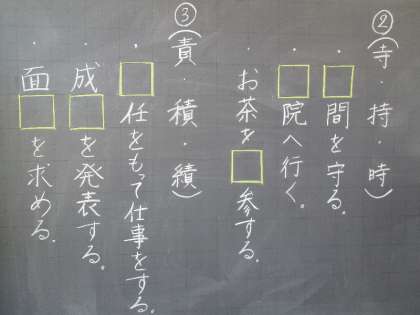 ②(寺・持・時)
・□間を守る。
・□院へ行く。
・お茶を□参する。
③(責・積・績)
・□任をもって仕事をする。
・成□を発表する。
・面□を求める。